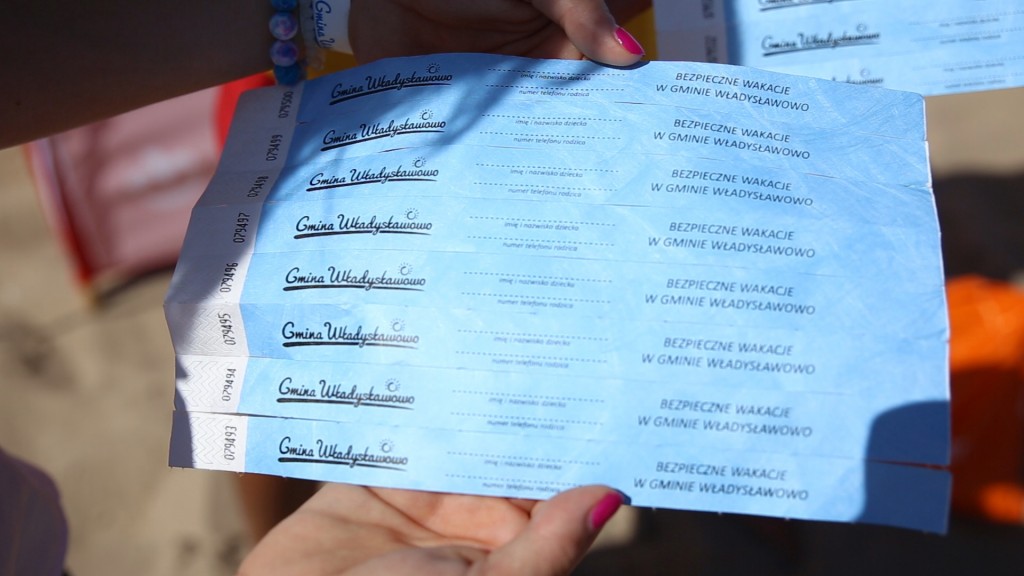 Gmina Władysławowo
079500
Gmina Władysławowo
imię i nazwisko dziecka
numer telefonu rodzica
BEZPIECZNE WAKACJE
W GMINIE WŁADYSŁAWOWO
079499
Gmina Władysławowo
imię i nazwisko dziecka
numer telefonu rodzica
BEZPIECZNE WAKACJE
W GMINIE WŁADYSŁAWOWO
079498
Gmina Władysławowo
imię i nazwisko dziecka
numer telefonu rodzica
BEZPIECZNE WAKACJE
W GMINIE WŁADYSŁAWOWO
079497
Gmina Władysławowo
imię i nazwisko dziecka
numer telefonu rodzica
BEZPIECZNE WAKACJE
W GMINIE WŁADYSŁAWOWO
079496
Gmina Władysławowo
imię i nazwisko dziecka
numer telefonu rodzica
BEZPIECZNE WAKACJE
W GMINIE WŁADYSŁAWOWO
079495
Gmina Władysławowo
imię i nazwisko dziecka
numer telefonu rodzica
BEZPIECZNE WAKACJE
W GMINIE WŁADYSŁAWOWO
079494
Gmina Władysławowo
imię i nazwisko dziecka
numer telefonu rodzica
BEZPIECZNE WAKACJE
W GMINIE WŁADYSŁAWOWO
079493
Gmina Władysławowo
imię i nazwisko dziecka
numer telefonu rodzica
BEZPIECZNE WAKACJE
W GMINIE WŁADYSŁAWOWO